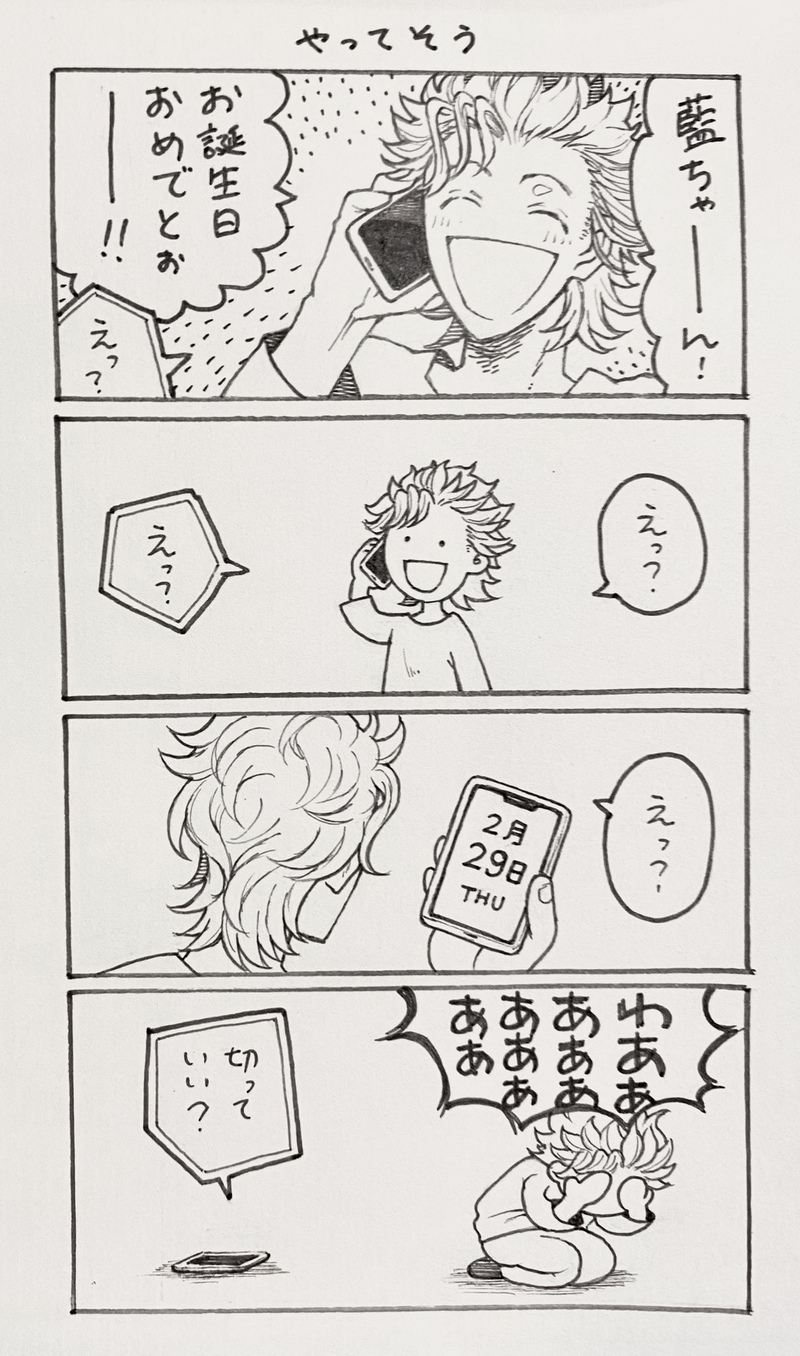 やってそう
藍ちゃーん!
お誕生日
おめでとぉ
ー!!
えっ?
えっ?
えっ?
えっ?
2月
29日
THU
わあぁ
あああ
あああ
ああ
切って
いい?